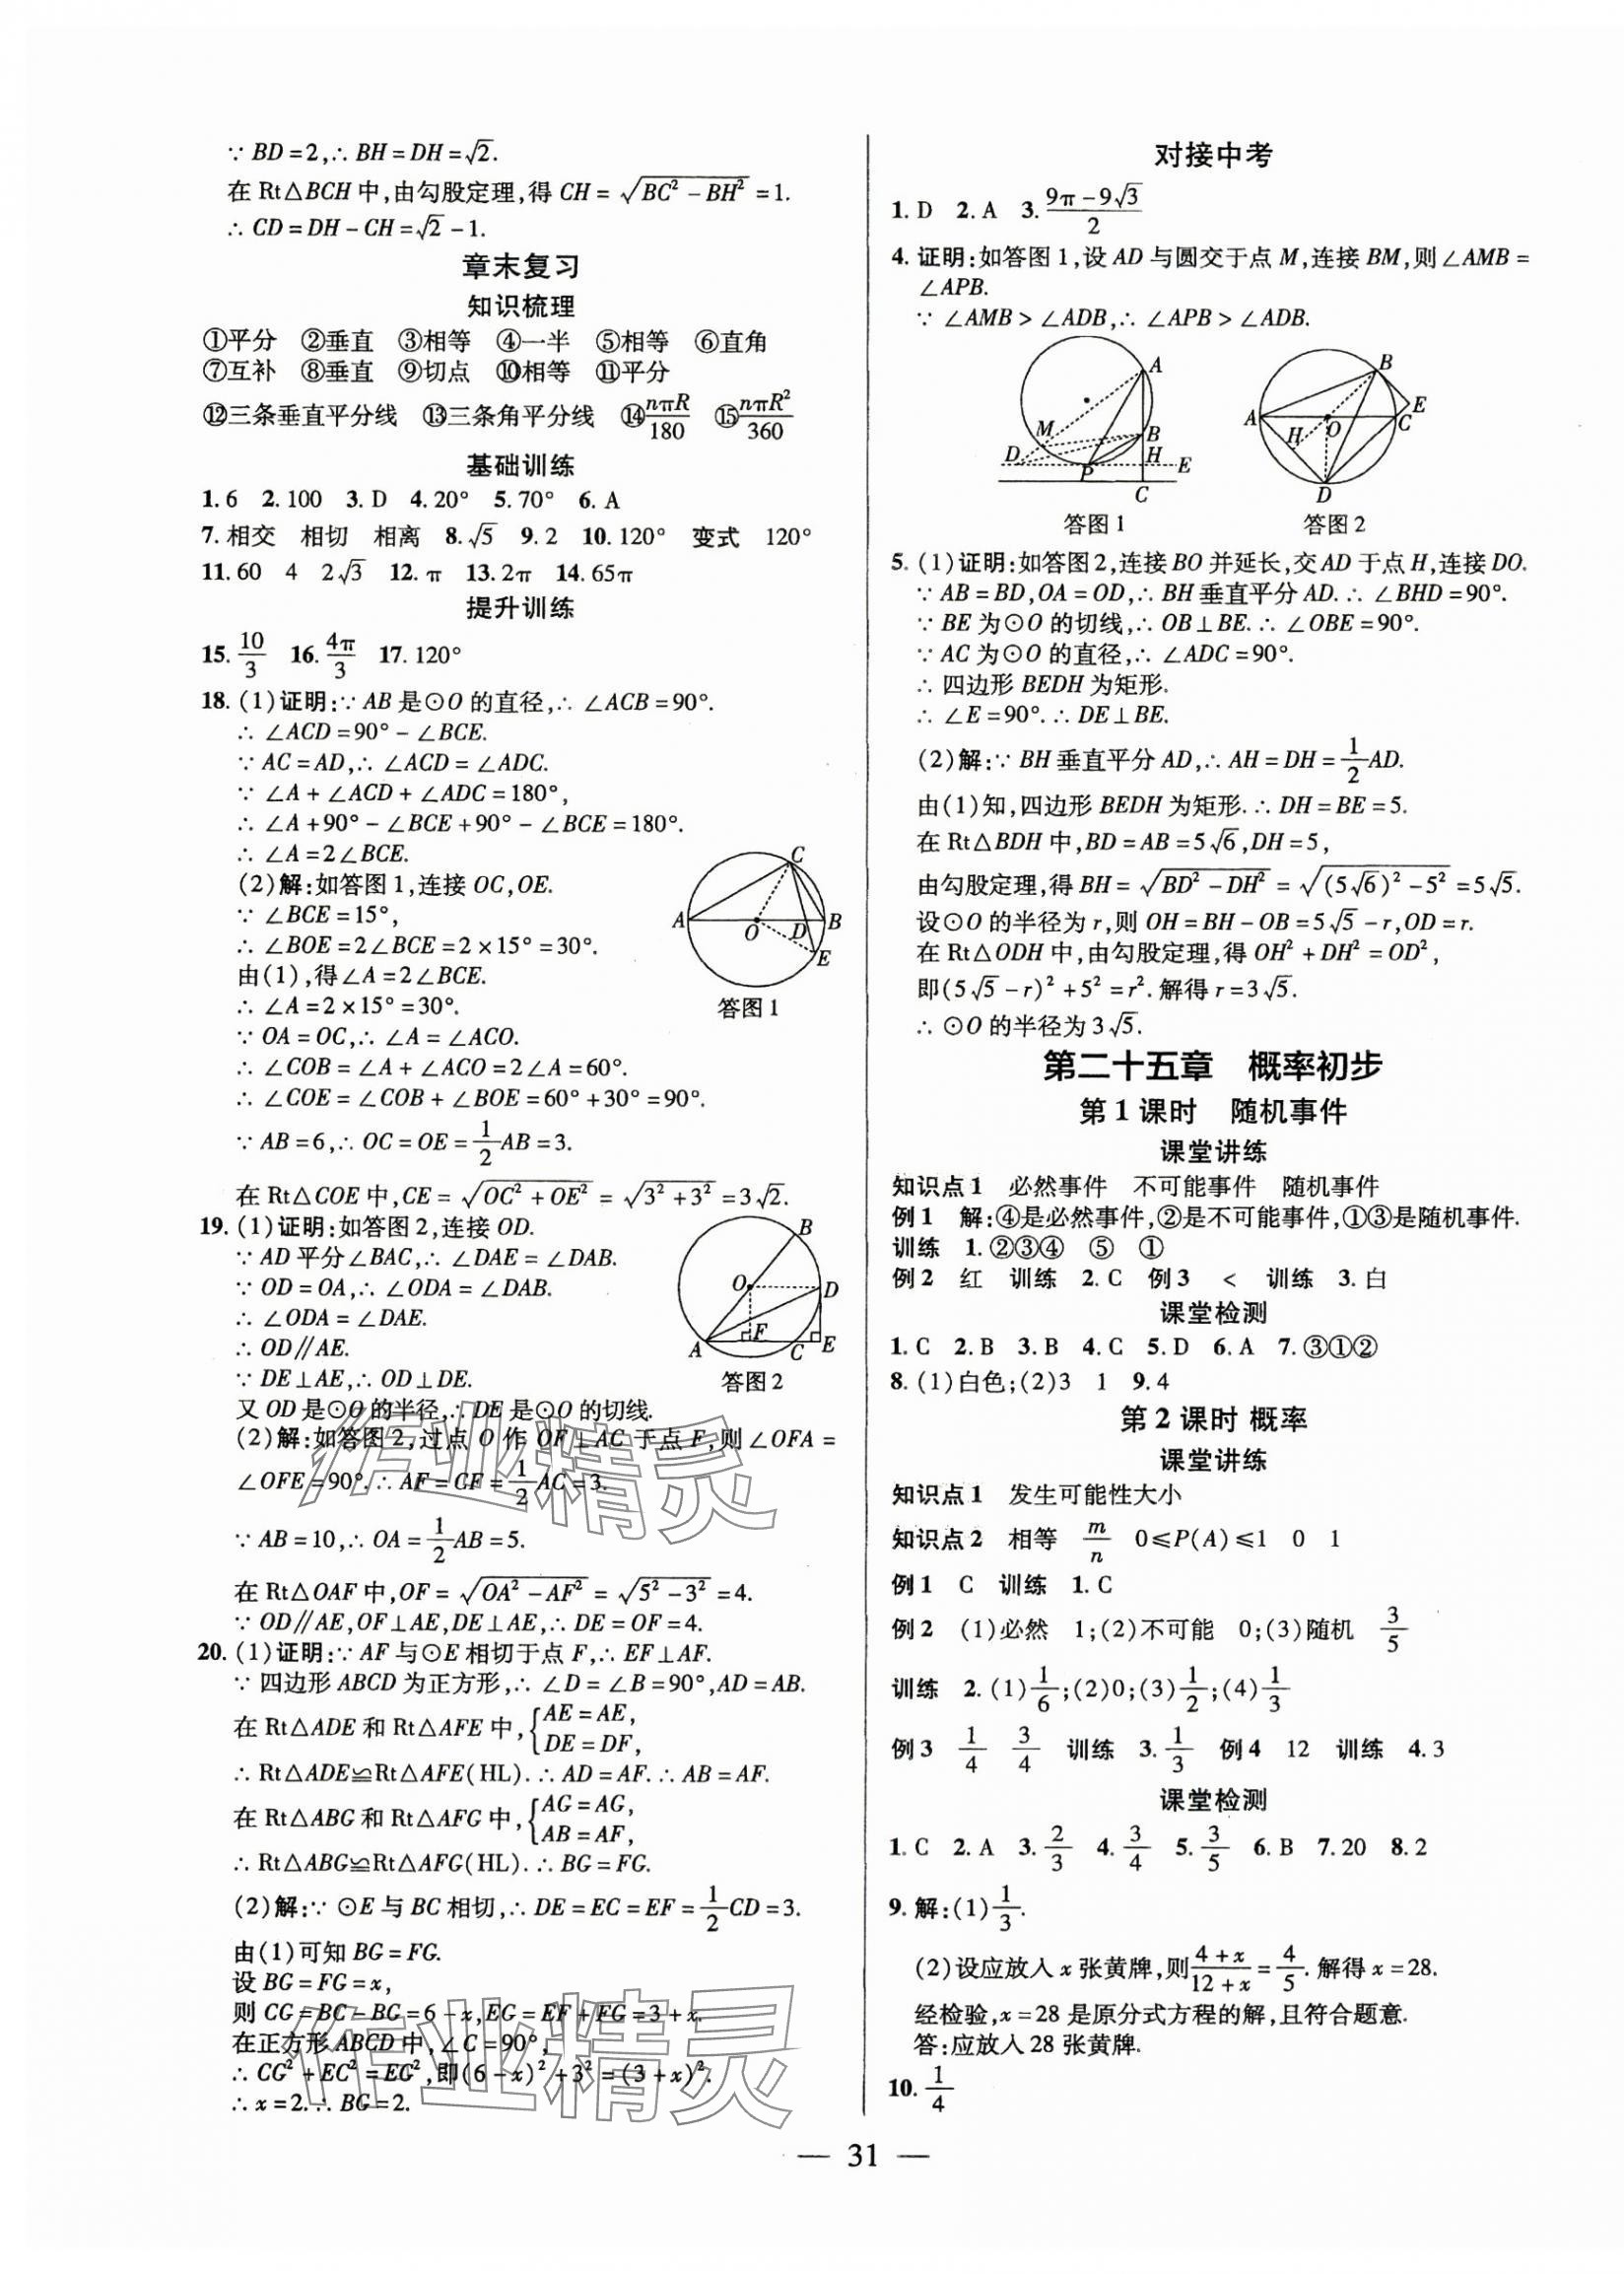 ∵ BD=2,∴ BH=DH=√2.
在 Rt△BCH 中,由勾股定理,得 CH=√(BC²-BH²)=1.
∴ CD=DH-CH=√2-1.
章末复习
知识梳理
①平分 ②垂直 ③相等 ④一半 ⑤相等 ⑥直角
⑦互补 ⑧垂直 ⑨切点 ⑩相等 ⑪平分
⑫三条垂直平分线 ⑬三条角平分线 ⑭nπR/180 ⑮nπR²/360
基础训练
1.6 2.100 3.D 4.20° 5.70° 6.A
7.相交 相切 相离 8.√5 9.2 10.120° 变式 120°
11.60 4 2√3 12.π 13.2π 14.65π
提升训练
15.10/3 16.4π/3 17.120°
18.(1)证明:∵ AB 是⊙O 的直径,∴ ∠ACB=90°.
∴ ∠ACD=90°-∠BCE.
∵ AC=AD,∴ ∠ACD=∠ADC.
∵ ∠A+∠ACD+∠ADC=180°,
∴ ∠A+90°-∠BCE+90°-∠BCE=180°.
∴ ∠A=2∠BCE.
(2)解:如答图 1,连接 OC,OE.
∵ ∠BCE=15°,
∴ ∠BOE=2∠BCE=2×15°=30°.
由(1),得∠A=2∠BCE.
∴ ∠A=2×15°=30°.
∵ OA=OC,∴ ∠A=∠ACO.
∴ ∠COB=∠A+∠ACO=2∠A=60°.
∴ ∠COE=∠COB+∠BOE=60°+30°=90°.
∵ AB=6,∴ OC=OE=1/2AB=3.
在 Rt△COE 中,CE=√(OC²+OE²)=√(3²+3²)=3√2.
A B C O D E
答图 1
19.(1)证明:如答图 2,连接 OD.
∵ AD 平分∠BAC,∴ ∠DAE=∠DAB.
∵ OD=OA,∴ ∠ODA=∠DAB.
∴ ∠ODA=∠DAE.
∴ OD∥AE.
∵ DE⊥AE,∴ OD⊥DE.
又 OD 是⊙O 的半径,∴ DE 是⊙O 的切线.
(2)解:如答图 2,过点 O 作 OF⊥AC 于点 F,则∠OFA=
∠OFE=90°.∴ AF=CF=1/2AC=3.
∵ AB=10,∴ OA=1/2AB=5.
在 Rt△OAF 中,OF=√(OA²-AF²)=√(5²-3²)=4.
∵ OD∥AE,OF⊥AE,DE⊥AE,∴ DE=OF=4.
B O D A F C E
答图 2
20.(1)证明:∵ AF 与⊙E 相切于点 F,∴ EF⊥AF.
∵ 四边形 ABCD 为正方形,∴ ∠D=∠B=90°,AD=AB.
在 Rt△ADE 和 Rt△AFE 中,{AE=AE,
DE=DF,
∴ Rt△ADE≌Rt△AFE(HL).∴ AD=AF.∴ AB=AF.
在 Rt△ABG 和 Rt△AFG 中,{AG=AG,
AB=AF,
∴ Rt△ABG≌Rt△AFG(HL).∴ BG=FG.
(2)解:∵ ⊙E 与 BC 相切,∴ DE=EC=EF=1/2CD=3.
由(1)可知 BG=FG.
设 BG=FG=x,
则 CG=BC-BG=6-x,EG=EF+FG=3+x.
在正方形 ABCD 中,∠C=90°,
∴ CG²+EC²=EG²,即(6-x)²+3²=(3+x)².
∴ x=2.∴ BG=2.
作业精灵
作业精灵
对接中考
1.D 2.A 3.(9π-9√3)/2
4.证明:如答图 1,设 AD 与圆交于点 M,连接 BM,则∠AMB=
∠APB.
∵ ∠AMB>∠ADB,∴ ∠APB>∠ADB.
A M B D P H E C
答图 1
B E A O C H D
答图 2
5.(1)证明:如答图 2,连接 BO 并延长,交 AD 于点 H,连接 DO.
∵ AB=BD,OA=OD,∴ BH 垂直平分 AD.∴ ∠BHD=90°.
∵ BE 为⊙O 的切线,∴ OB⊥BE.∴ ∠OBE=90°.
∵ AC 为⊙O 的直径,∴ ∠ADC=90°.
∴ 四边形 BEDH 为矩形.
∴ ∠E=90°.∴ DE⊥BE.
(2)解:∵ BH 垂直平分 AD,∴ AH=DH=1/2AD.
由(1)知,四边形 BEDH 为矩形.∴ DH=BE=5.
在 Rt△BDH 中,BD=AB=5√6,DH=5,
由勾股定理,得 BH=√(BD²-DH²)=√((5√6)²-5²)=5√5.
设⊙O 的半径为 r,则 OH=BH-OB=5√5-r,OD=r.
在 Rt△ODH 中,由勾股定理,得 OH²+DH²=OD²,
即(5√5-r)²+5²=r².解得 r=3√5.
∴ ⊙O 的半径为 3√5.
第二十五章 概率初步
第 1 课时 随机事件
课堂讲练
知识点 1 必然事件 不可能事件 随机事件
例 1 解:④是必然事件,②是不可能事件,①③是随机事件.
训练 1.②③④ ⑤ ①
例 2 红 训练 2.C 例 3 < 训练 3.白
课堂检测
1.C 2.B 3.B 4.C 5.D 6.A 7.③①②
8.(1)白色;(2)3 1 9.4
第 2 课时 概率
课堂讲练
知识点 1 发生可能性大小
知识点 2 相等 m/n 0≤P(A)≤1 0 1
例 1 C 训练 1.C
例 2 (1)必然 1;(2)不可能 0;(3)随机 3/5
训练 2.(1)1/6;(2)0;(3)1/2;(4)1/3
例 3 1/4 3/4 训练 3.1/3 例 4 12 训练 4.3
课堂检测
1.C 2.A 3.2/3 4.3/4 5.3/5 6.B 7.20 8.2
9.解:(1)1/3.
(2)设应放入 x 张黄牌,则(4+x)/(12+x)=4/5.解得 x=28.
经检验,x=28 是原分式方程的解,且符合题意.
答:应放入 28 张黄牌.
10.1/4
— 31 —